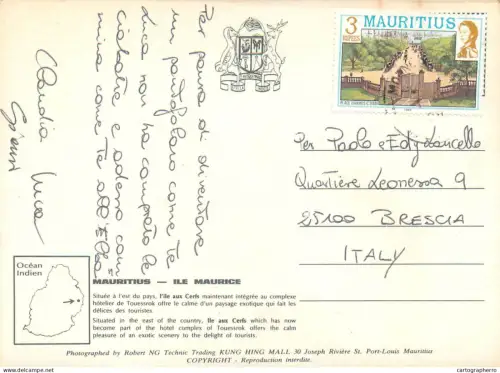 Per paura di diventare
un pantofolaio come te
Luca non ha comprato le
ciabatte e adesso cam
mina come te all'Elba
Claudia Luca
Gianni
3
RUPEES
MAURITIUS
Per Paolo e Edy
Quartiere Leonessa 9
25100 BRESCIA
ITALY
Océan
Indien
MAURITIUS — ILE MAURICE
Située à l'est du pays, l'île aux Cerfs maintenant intégrée au complexe
hôtelier de Touessrok offre le calme d'un paysage exotique qui fait les
délices des touristes.
Situated in the east of the country, Ile aux Cerfs which has now
become part of the hotel complex of Touessrok offers the calm
pleasure of an exotic scenery to the delight of tourists.
Photographed by Robert NG Technic Trading KUNG HING MALL 30 Joseph Rivière St. Port-Louis Mauritius
COPYRIGHT - Reproduction interdite.
https://www.delcampe.net
cartographero